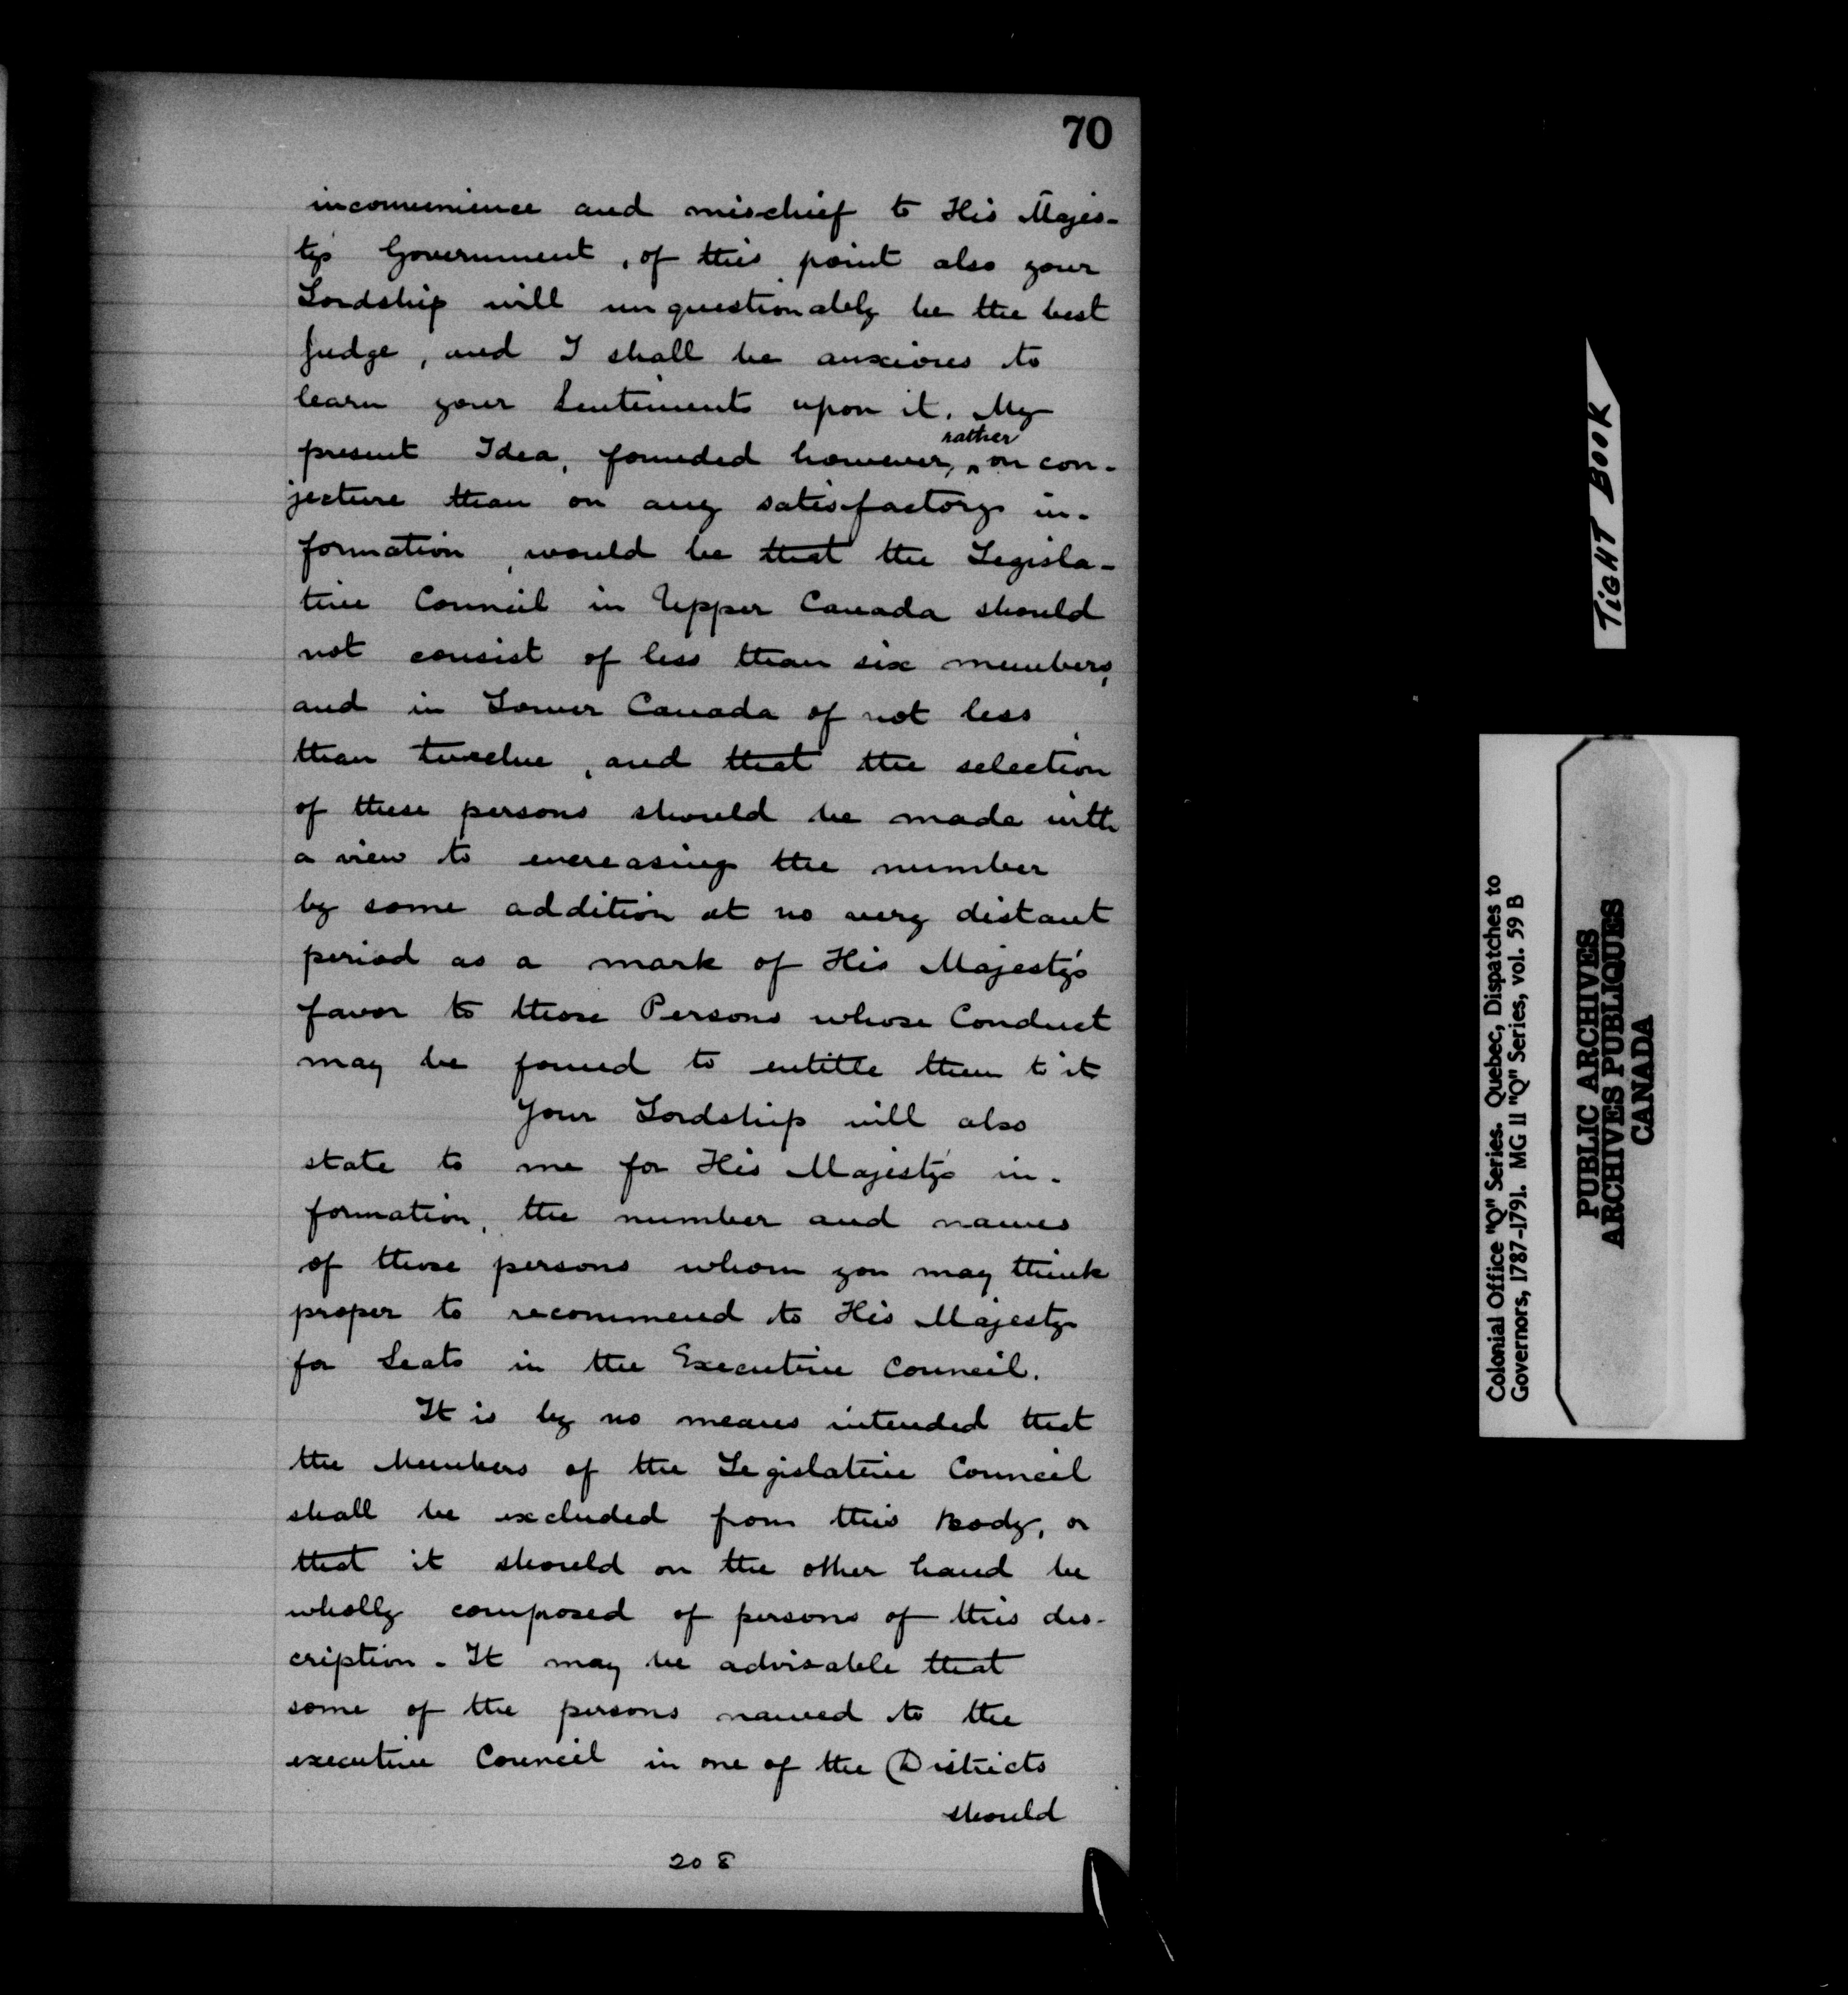 70
inconvenience and mischief to His Majes-
ty's Government, of this point also your
Lordship will unquestionably be the best
judge, and I shall be anxious to
learn your Sentiments upon it. My
present Idea, founded however, rather on con-
jecture than on any satisfactory in-
formation, would be that the Legisla-
tive Council in Upper Canada should
not consist of less than six members,
and in Lower Canada of not less
than twelve, and that the selection
of these persons should be made with
a view to encreasing the number
by some addition at no very distant
period as a mark of His Majesty's
favor to those Persons whose Conduct
may be found to entitle them to it
Your Lordship will also
state to me for His Majesty's in-
formation, the number and names
of those persons whom you may think
proper to recommend to His Majesty
for Seats in the Executive Council.
It is by no means intended that
the Members of the Legislative Council
shall be excluded from this Body, or
that it should on the other hand be
wholly composed of persons of this des-
cription. It may be advisable that
some of the persons named to the
executive Council in one of the Districts
should
208
TIGHT BOOK
Colonial Office "Q" Series. Quebec, Dispatches to
Governors, 1787-1791. MG 11 "Q" Series, vol. 59 B
PUBLIC ARCHIVES
ARCHIVES PUBLIQUES
CANADA